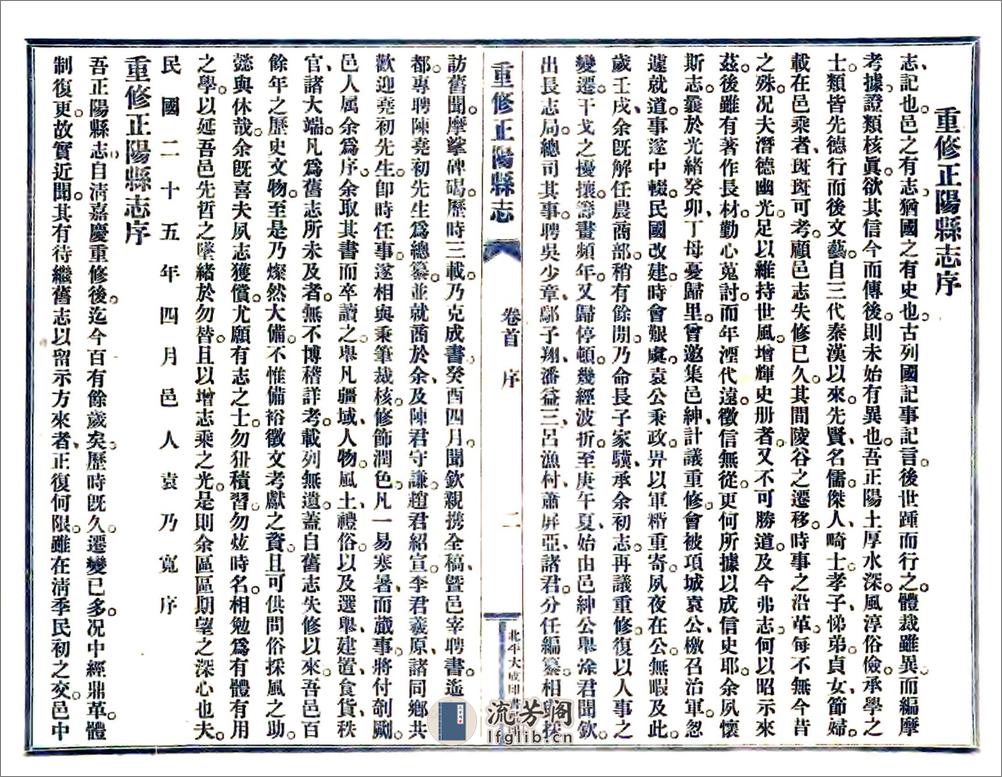 重修正陽縣志序
志、記也。邑之有志、猶國之有史也。古列國記事記言。後世踵而行之。體裁雖異。而編摩
考據。證類核眞。欲其信今而傳後。則未始有異也。吾正陽土厚水深。風淳俗儉。承學之
士。類皆先德行而後文藝。自三代秦漢以來。先賢名儒、傑人畸士、孝子悌弟、貞女節婦、
載在邑乘者、斑斑可考。顧邑志失修已久。其間陵谷之遷移。時事之沿革。每不無今昔
之殊。況夫潛德幽光。足以維持世風。增輝史册者。又不可勝道。及今弗志。何以昭示來
茲。後雖有著作長材。勤心蒐討。而年湮代遠。徵信無從。更何所據以成信史耶。余夙懷
斯志。曩於光緒癸卯。丁母憂歸里。曾邀集邑紳。計議重修。會被項城袁公檄召治軍。忽
遽就道。事遂中輟。民國改建。時會艱虞。袁公秉政。畀以軍糈重寄。夙夜在公。無暇及此。
歲壬戌、余既解任農商部。稍有餘閒。乃命長子家驥、承余初志。再議重修。復以人事之
變遷。干戈之擾攘。籌畫頻年。又歸停頓。幾經波折。至庚午夏。始由邑紳公舉徐君聞欽。
出長志局。總司其事。聘吳少章、鄢子翔、潘益三、呂漁村、蕭屏亞、諸君分任編纂。相與採
重修正陽縣志
卷首
序
二
北平大成印書
訪舊聞。摩挲碑碣。歷時三載。乃克成書。癸酉四月。聞欽親携全稿。曁邑宰聘書。遙
都專聘陳堯初先生爲總纂。並就商於余。及陳君守謙、趙君紹宣、李君羲原、諸同鄉共
歡迎堯初先生。卽時任事。遂相與秉筆裁核。修飾潤色。凡一易寒暑而蕆事。將付剞劂。
邑人属余爲序。余取其書而卒讀之。舉凡疆域、人物。風土禮俗。以及選舉建置、食貨秩
官諸大端。凡爲舊志所未及者。無不博稽詳考。載列無遺。蓋自舊志失修以來。吾邑百
餘年之歷史文物。至是乃燦然大備。不惟備裕徵文考獻之資。且可供問俗採風之助。
懿與休哉。余既喜夫夙志獲償。尤願有志之士。勿狃積習。勿炫時名。相勉爲有體有用
之學。以延吾邑先哲之墜緒於勿替。且以增志乘之光。是則余區區期望之深心也夫。
民國二十五年四月邑人袁乃寬序
重修正陽縣志序
吾正陽縣志、自清嘉慶重修後。迄今百有餘歲矣。歷時既久。遷變已多。況中經鼎革。體
制復更。故實近聞。其有待繼舊志以留示方來者、正復何限。雖在清季民初之交。邑中
流芳閣
lfglib.cn